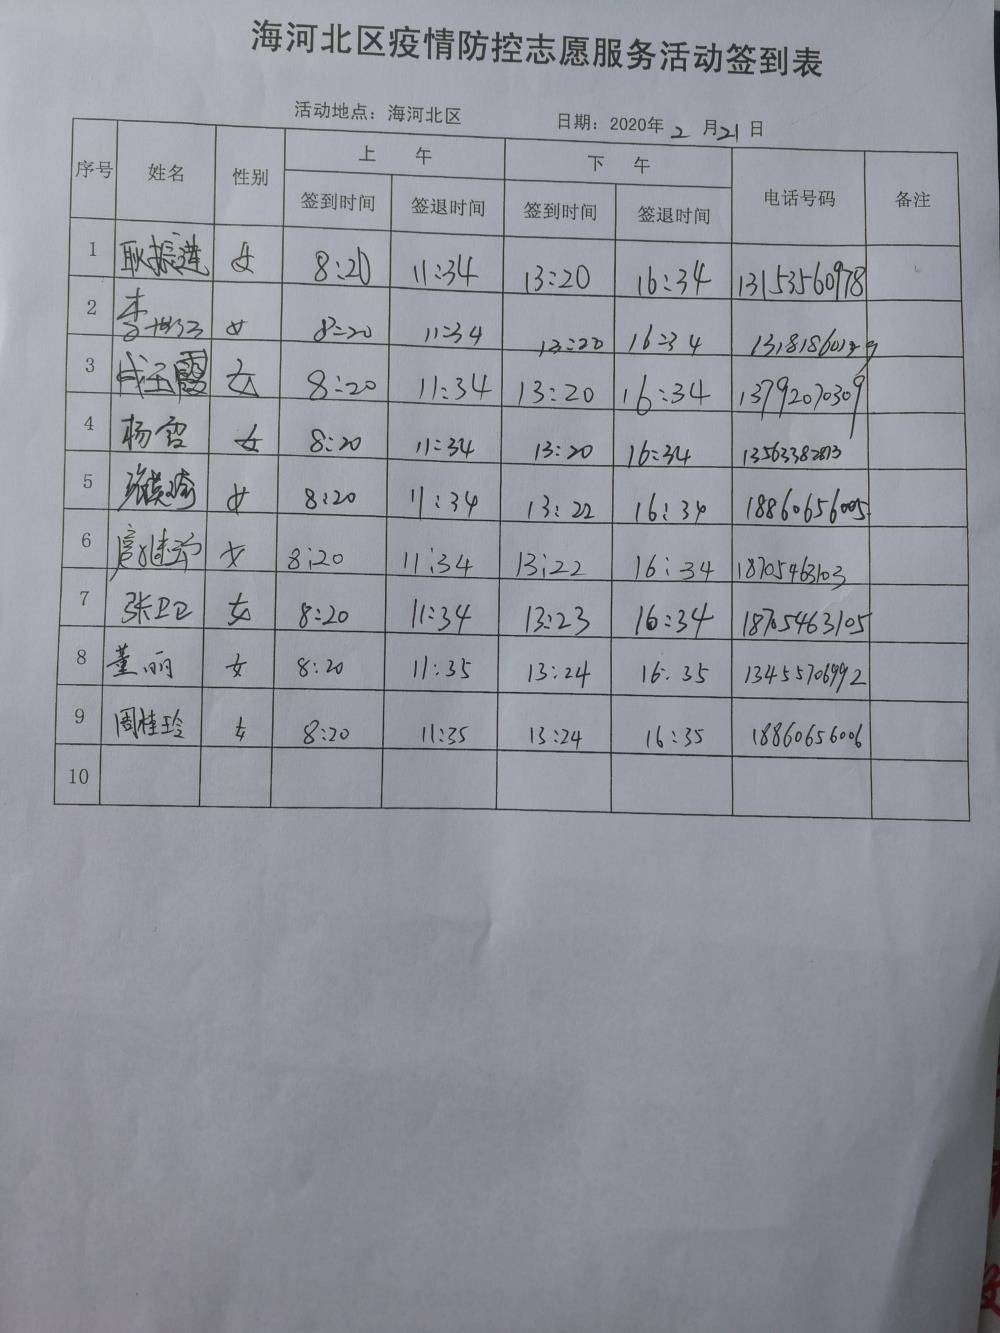 海河北区疫情防控志愿服务活动签到表
活动地点：海河北区 日期：2020年2月21日
序号 姓名 性别 上午 下午 电话号码 备注
签到时间 签退时间 签到时间 签退时间
1 耿振莲 女 8:20 11:34 13:20 16:34 13153560978
2 李 女 8:20 11:34 13:20 16:34
3 成玉霞 女 8:20 11:34 13:20 16:34 13792070309
4 杨雪 女 8:20 11:34 13:20 16:34 13563382813
5 女 8:20 11:34 13:22 16:34 18860656005
6 女 8:20 11:34 13:22 16:34 18705463103
7 张卫卫 女 8:20 11:34 13:23 16:34 18705463105
8 董丽 女 8:20 11:35 13:24 16:35 13455706992
9 周桂玲 女 8:20 11:35 13:24 16:35 18860656006
10